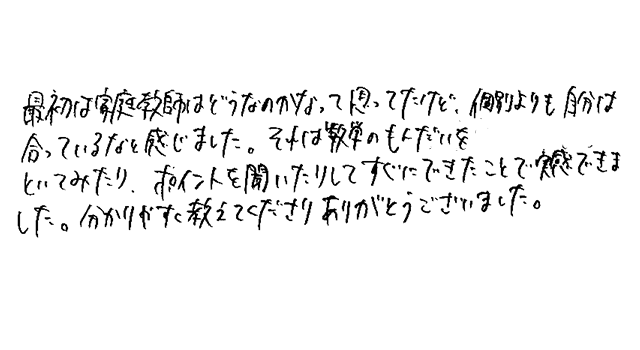 最初は家庭教師はどうなのかなって思ってたけど、個別よりも自分は
合っているなと感じました。それは数学のもんだいを
といてみたり、ポイントを聞いたりしてすぐにできたことで実感できま
した。分かりやすく教えてくださりありがとうございました。